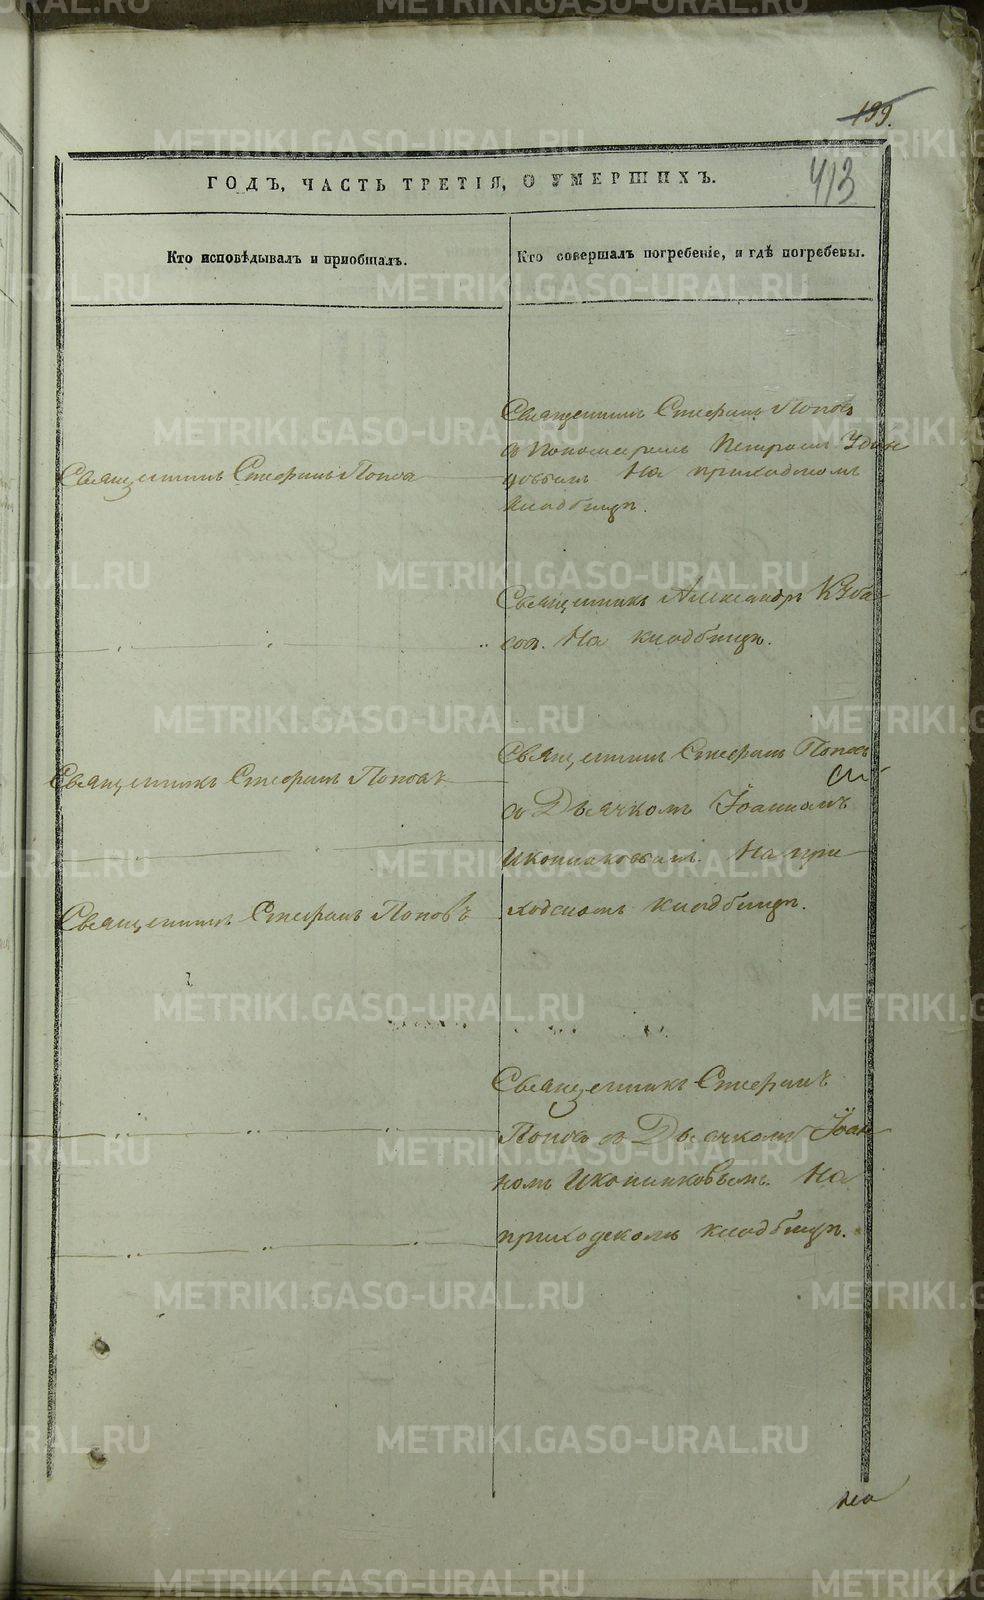 199.
413
ГОДЪ, ЧАСТЬ ТРЕТІЯ, О УМЕРШИХЪ.
Кто исповѣдывалъ и приобщалъ.
Кто совершалъ погребеніе, и гдѣ погребены.
Священникъ Стефанъ Поповъ
Священникъ Стефанъ Поповъ
съ Пономаремъ Петромъ
На приходскомъ
кладбищѣ.
Священникъ Александръ Куба-
совъ. На кладбищѣ.
Священникъ Стефанъ Поповъ
Священникъ Стефанъ Поповъ
Священникъ Стефанъ Поповъ
съ Дьячкомъ Іоанномъ
Иконниковымъ. На при
ходскомъ кладбищѣ.
Священникъ Стефанъ
Поповъ съ Дьячкомъ Іоан
номъ Иконниковымъ. На
приходскомъ кладбищѣ.
METRIKI.GASO-URAL.RU